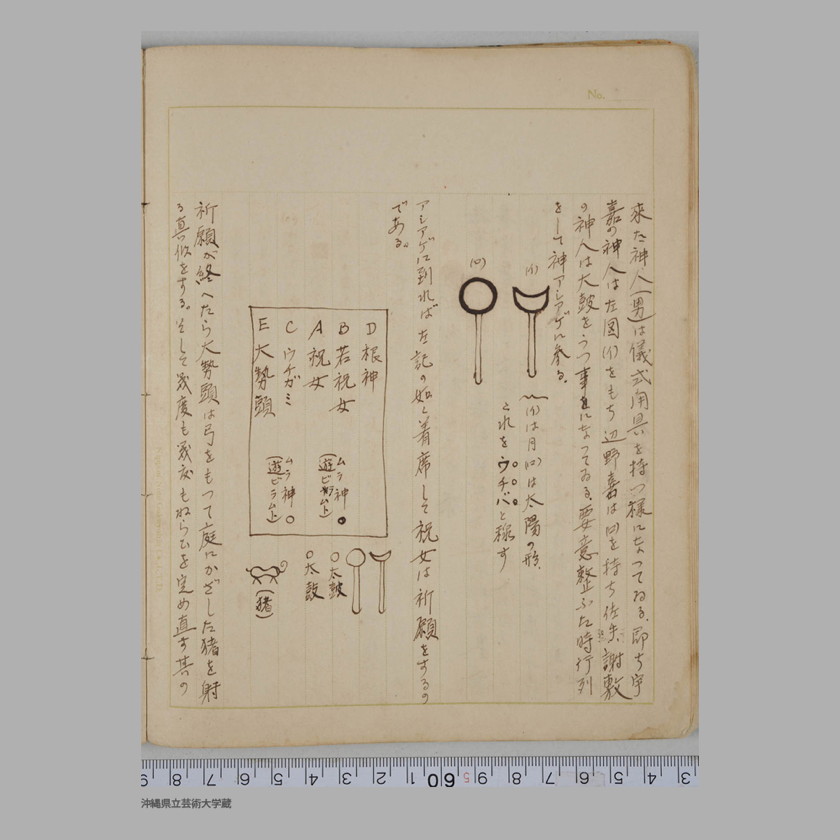 No.
來た神人(男)は儀式用具を持つ様になつてゐる、即ち宇
嘉の神人は左図(イ)をもち辺野喜は(ロ)を持ち佐手謝敷
の神人は太鼓をうつ事になつてゐる。要意整ふた時行列
をして神アシアゲに参る。
(イ)
(ロ)
(イ)は月(ロ)は太陽の形、
これをウチバと称す
アシアゲに到れば左記の如く着席して祝女は祈願をするの
である。
D 根神
B 若祝女
A 祝女
C ウチガミ
E 大勢頭
ムラ神
(遊ビ神以上)
ムラ神
(遊ビ神以上)
太鼓
太鼓
(猪)
祈願が終へたら大勢頭は弓をもつて庭にかざした猪を射
る真似をする。そして幾度も幾度もねらひを定め直す其の
9 8 7 6 5 4 3 2 1 60 9 8 7 6 5 4 3
沖縄県立芸術大学蔵